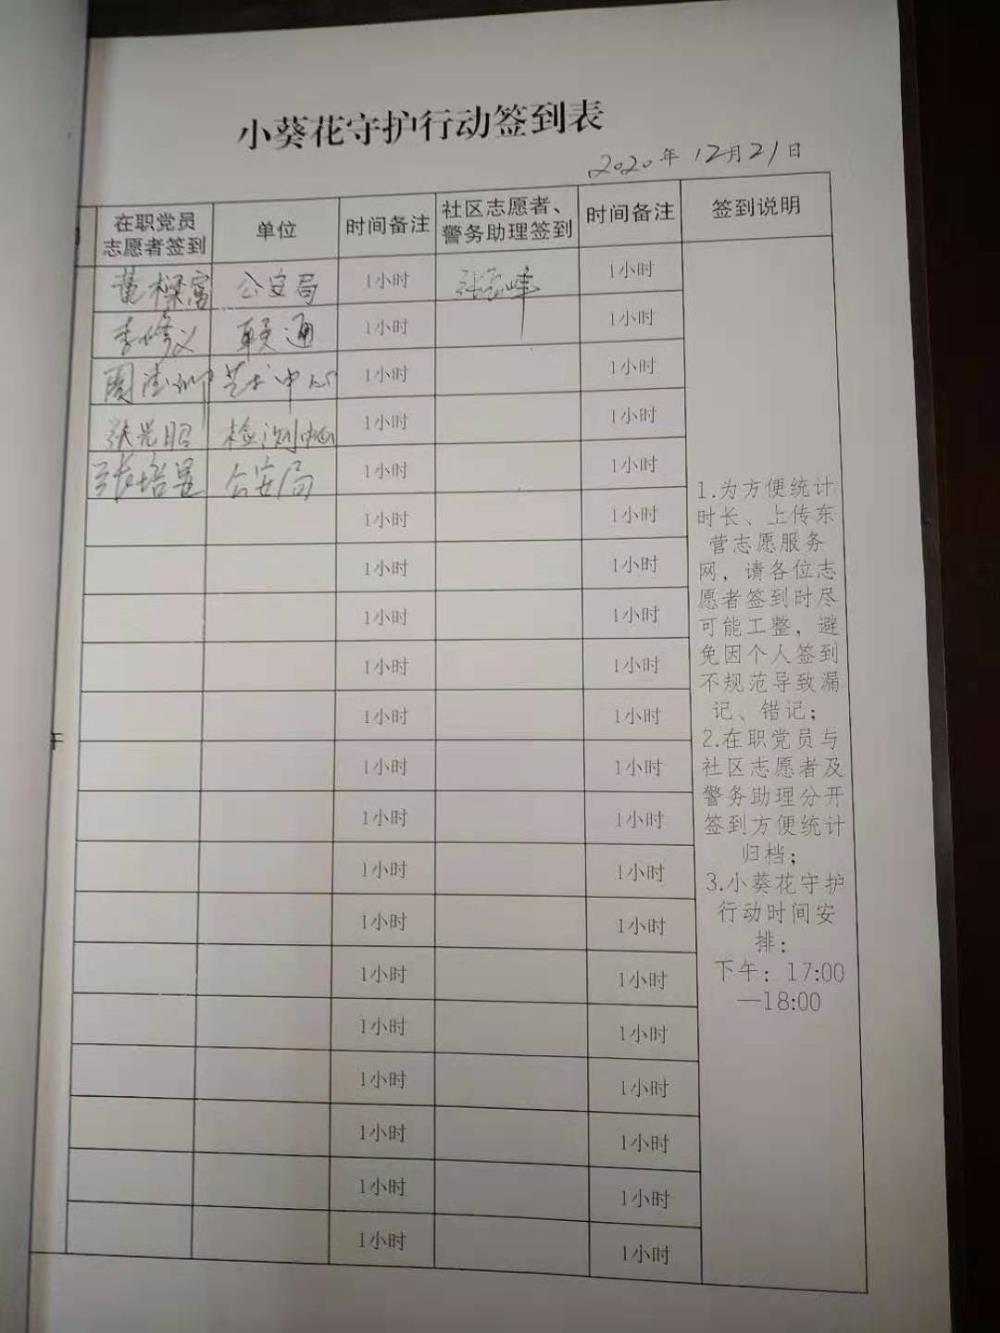 小葵花守护行动签到表
2020年 12月21日
在职党员
志愿者签到
单位
时间备注
社区志愿者、
警务助理签到
时间备注
签到说明
公安局 1小时 1小时
李修义 联通 1小时 1小时
艺术中心 1小时 1小时
张光昭 检测中心 1小时 1小时
张培昱 公安局 1小时 1小时
1小时 1小时
1小时 1小时
1小时 1小时
1小时 1小时
1小时 1小时
1小时 1小时
1小时 1小时
1小时 1小时
1小时 1小时
1小时 1小时
1小时 1小时
1小时 1小时
1小时 1小时
1小时 1小时
1小时 1小时
1.为方便统计
时长、上传东
营志愿服务
网，请各位志
愿者签到时尽
可能工整，避
免因个人签到
不规范导致漏
记、错记；
2.在职党员与
社区志愿者及
警务助理分开
签到方便统计
归档；
3.小葵花守护
行动时间安
排：
下午：17:00
—18:00